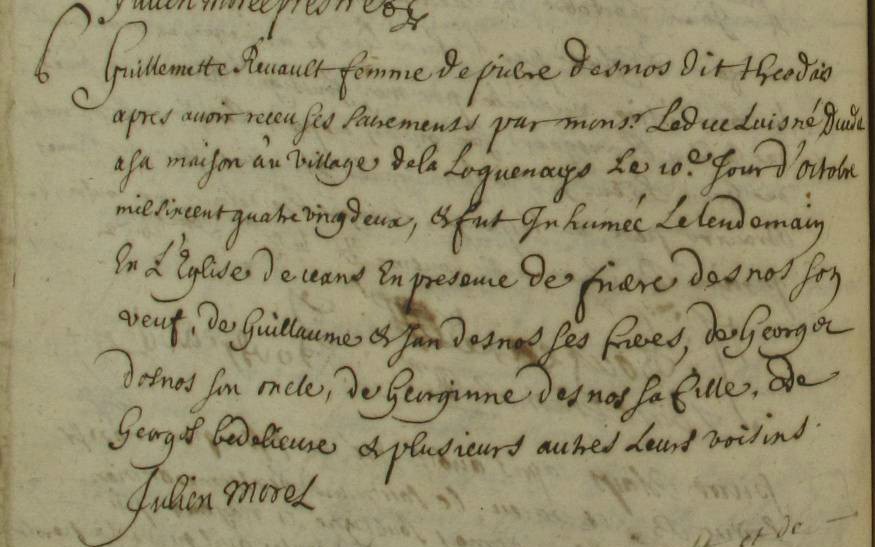 Julien Morel prestre
Guillemette Renault femme de piere desnos dit theodais
apres avoir receu ses sacrements par mons.r Leduc
a sa maison au village dela Loguenays Le 10.e Jour d'octobre
mil six cent quatre vingdeux, & fut Inhumée Lelendemain
En L'Eglise de ceans En presence de piere desnos son
veuf, de Guillaume & Jan desnos ses freres, de George
desnos son oncle, de Georginne desnos sa fille, & de
Georges bedelieure & plusieurs autres Leurs voisins.
Julien Morel
et de